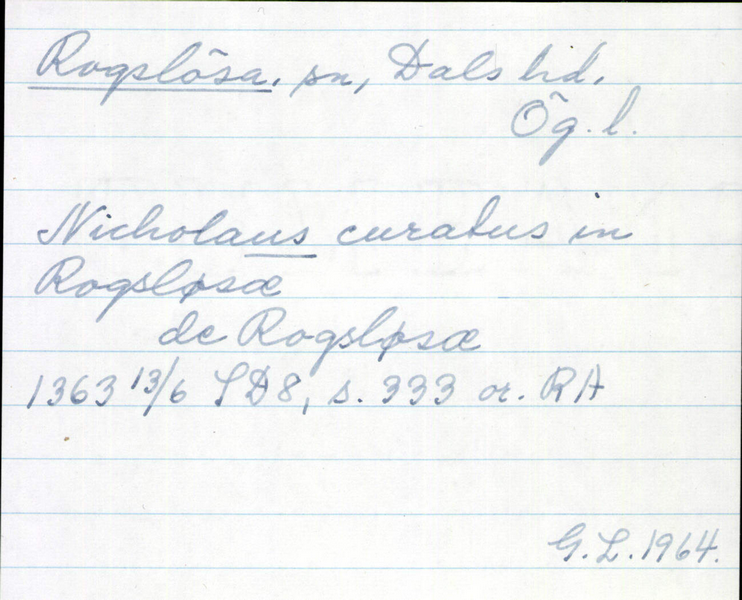 Rogslösa, sn, Dals hd.
Ög. l.
Nicholaus curatus in
Rogsløsæ
de Rogsløsæ
1363 13/6 SD 8, s. 333 or. RA
G.L. 1964.